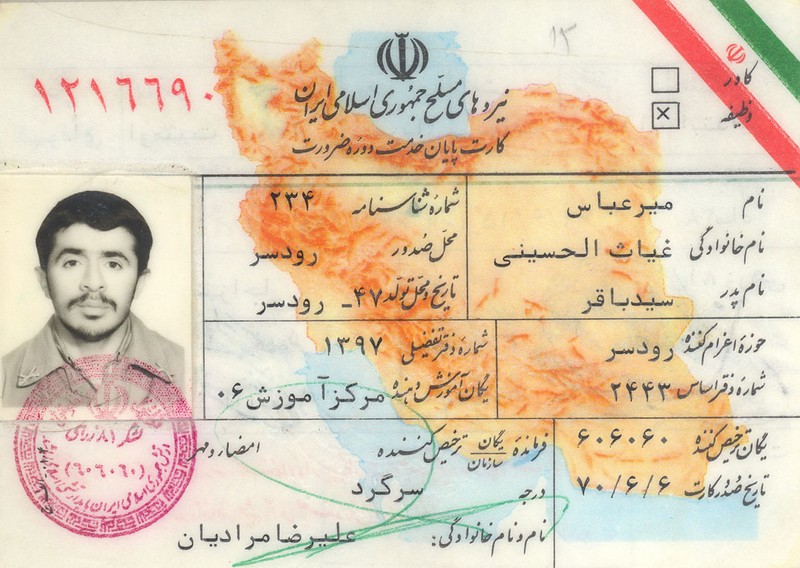 ۱۳
نیروهای مسلح جمهوری اسلامی ایران
کارت پایان خدمت دوره ضرورت
کادر
وظیفه
۱۲۱۶۶۹۰
نام میرعباس
نام خانوادگی غیاث الحسینی
نام پدر سیدباقر
شماره شناسنامه ۲۳۴
محل صدور رودسر
تاریخ و محل تولد ۴۷- رودسر
حوزه اعزام کننده رودسر
شماره دفتر اساس ۲۴۴۳
شماره دفتر تفضیلی ۱۳۹۷
یگان آموزش دهنده مرکز آموزش ۰۶
یگان ترخیص کننده ۶۰۶۰۶۰
تاریخ صدور کارت ۷۰/۶/۶
فرمانده یگان سازمان ترخیص کننده
امضار و مهر
درجه سرگرد
نام و نام خانوادگی: علیرضا مرادیان
(۶۰۶۰۶۰)